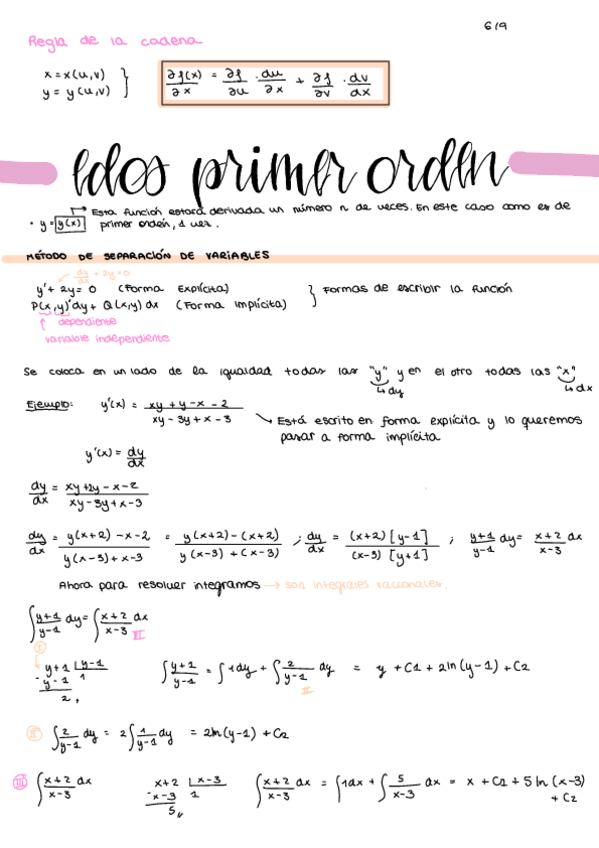 6/9
Regla de la cadena
x = x(u,v) }
y = y(u,v)
∂f(x)/∂x = ∂f/∂u · du/∂x + ∂f/∂v · dv/dx
edos primer orden
→ Esta función estará derivada un número n de veces. En este caso como es de
· y = y(x) primer orden, 1 vez.
MÉTODO DE SEPARACIÓN DE VARIABLES
dy/dx + 2y = 0
y' + 2y = 0 (Forma Explícita) } Formas de escribir la función
P(x,y) dy + Q(x,y) dx (Forma Implícita)
↑ dependiente
variable independiente
Se coloca en un lado de la igualdad todas las "y" y en el otro todas las "x"
↳ dy ↳ dx
Ejemplo: y'(x) = xy + y - x - 2 / xy - 3y + x - 3
↘ Está escrito en forma explícita y lo queremos
pasar a forma implícita
y'(x) = dy/dx
dy/dx = xy + 2y - x - 2 / xy - 3y + x - 3
dy/dx = y(x+2) - x - 2 / y(x-3) + x - 3 = y(x+2) - (x+2) / y(x-3) + (x-3) ; dy/dx = (x+2)[y-1] / (x-3)[y+1] ; y+1/y-1 dy = x+2/x-3 dx
Ahora para resolver integramos → son integrales racionales.
∫ y+1/y-1 dy = ∫ x+2/x-3 dx III
I
y+1 | y-1
- y-1 1
2,
∫ y+1/y-1 = ∫ 1 dy + ∫ 2/y-1 dy = y + C1 + 2ln(y-1) + C2
II
II ∫ 2/y-1 dy = 2 ∫ 1/y-1 dy = 2ln(y-1) + C2
III ∫ x+2/x-3 dx x+2 | x-3 ∫ x+2/x-3 dx = ∫ 1dx + ∫ 5/x-3 dx = x + C1 + 5ln(x-3)
-x-3 1 + C2
5,,